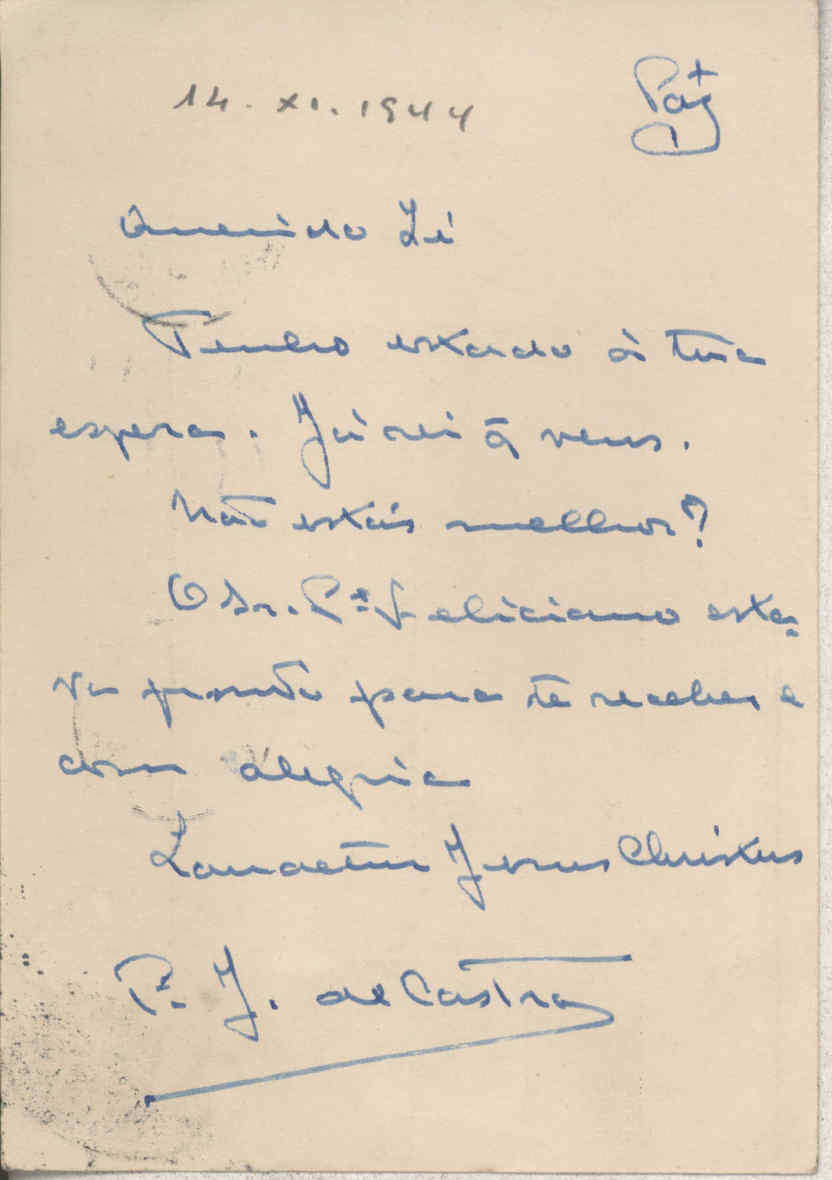 14. XI. 1944
Paz
Querido Zé
Tenho estado à tua
espera. Já sei q̃ vens.
Não estás melhor?
O Sr. Pe Feliciano esta-
va pronto para te receber e
com alegria
Laudetur Jesus Christus
P. J. de Castro